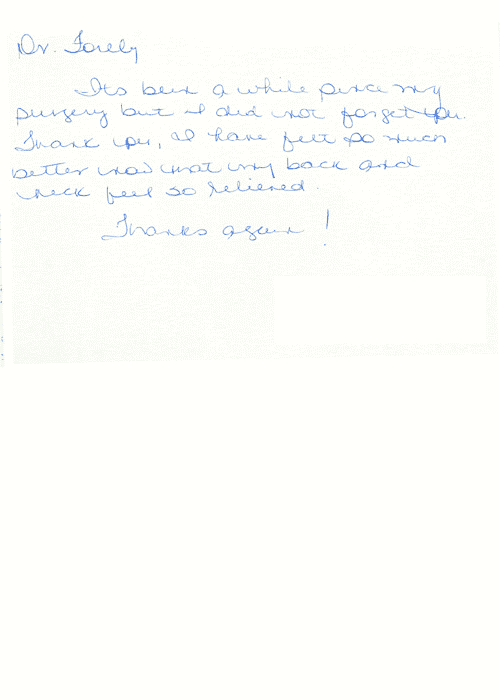 Dr. Forely
Its been a while since my
surgery but I did not forget you.
Thank you, I have felt so much
better now that my back and
neck feel so relieved.
Thanks again!